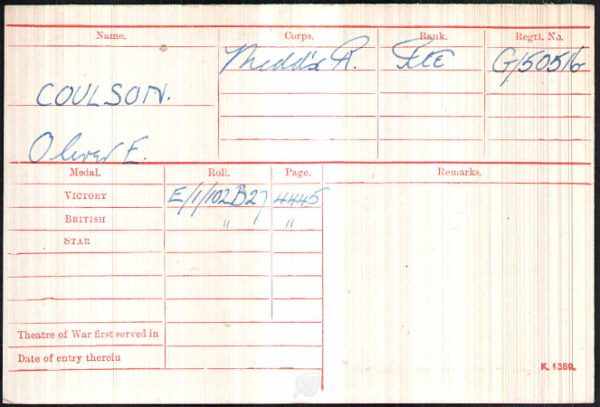 Name. Corps. Rank. Regtl. No.
Midd'x R. Pte G/50516
COULSON.
Oliver E.
Medal. Roll. Page. Remarks.
VICTORY E/1/102B27 4445
BRITISH " "
STAR
Theatre of War first served in
Date of entry therein
K. 1380.